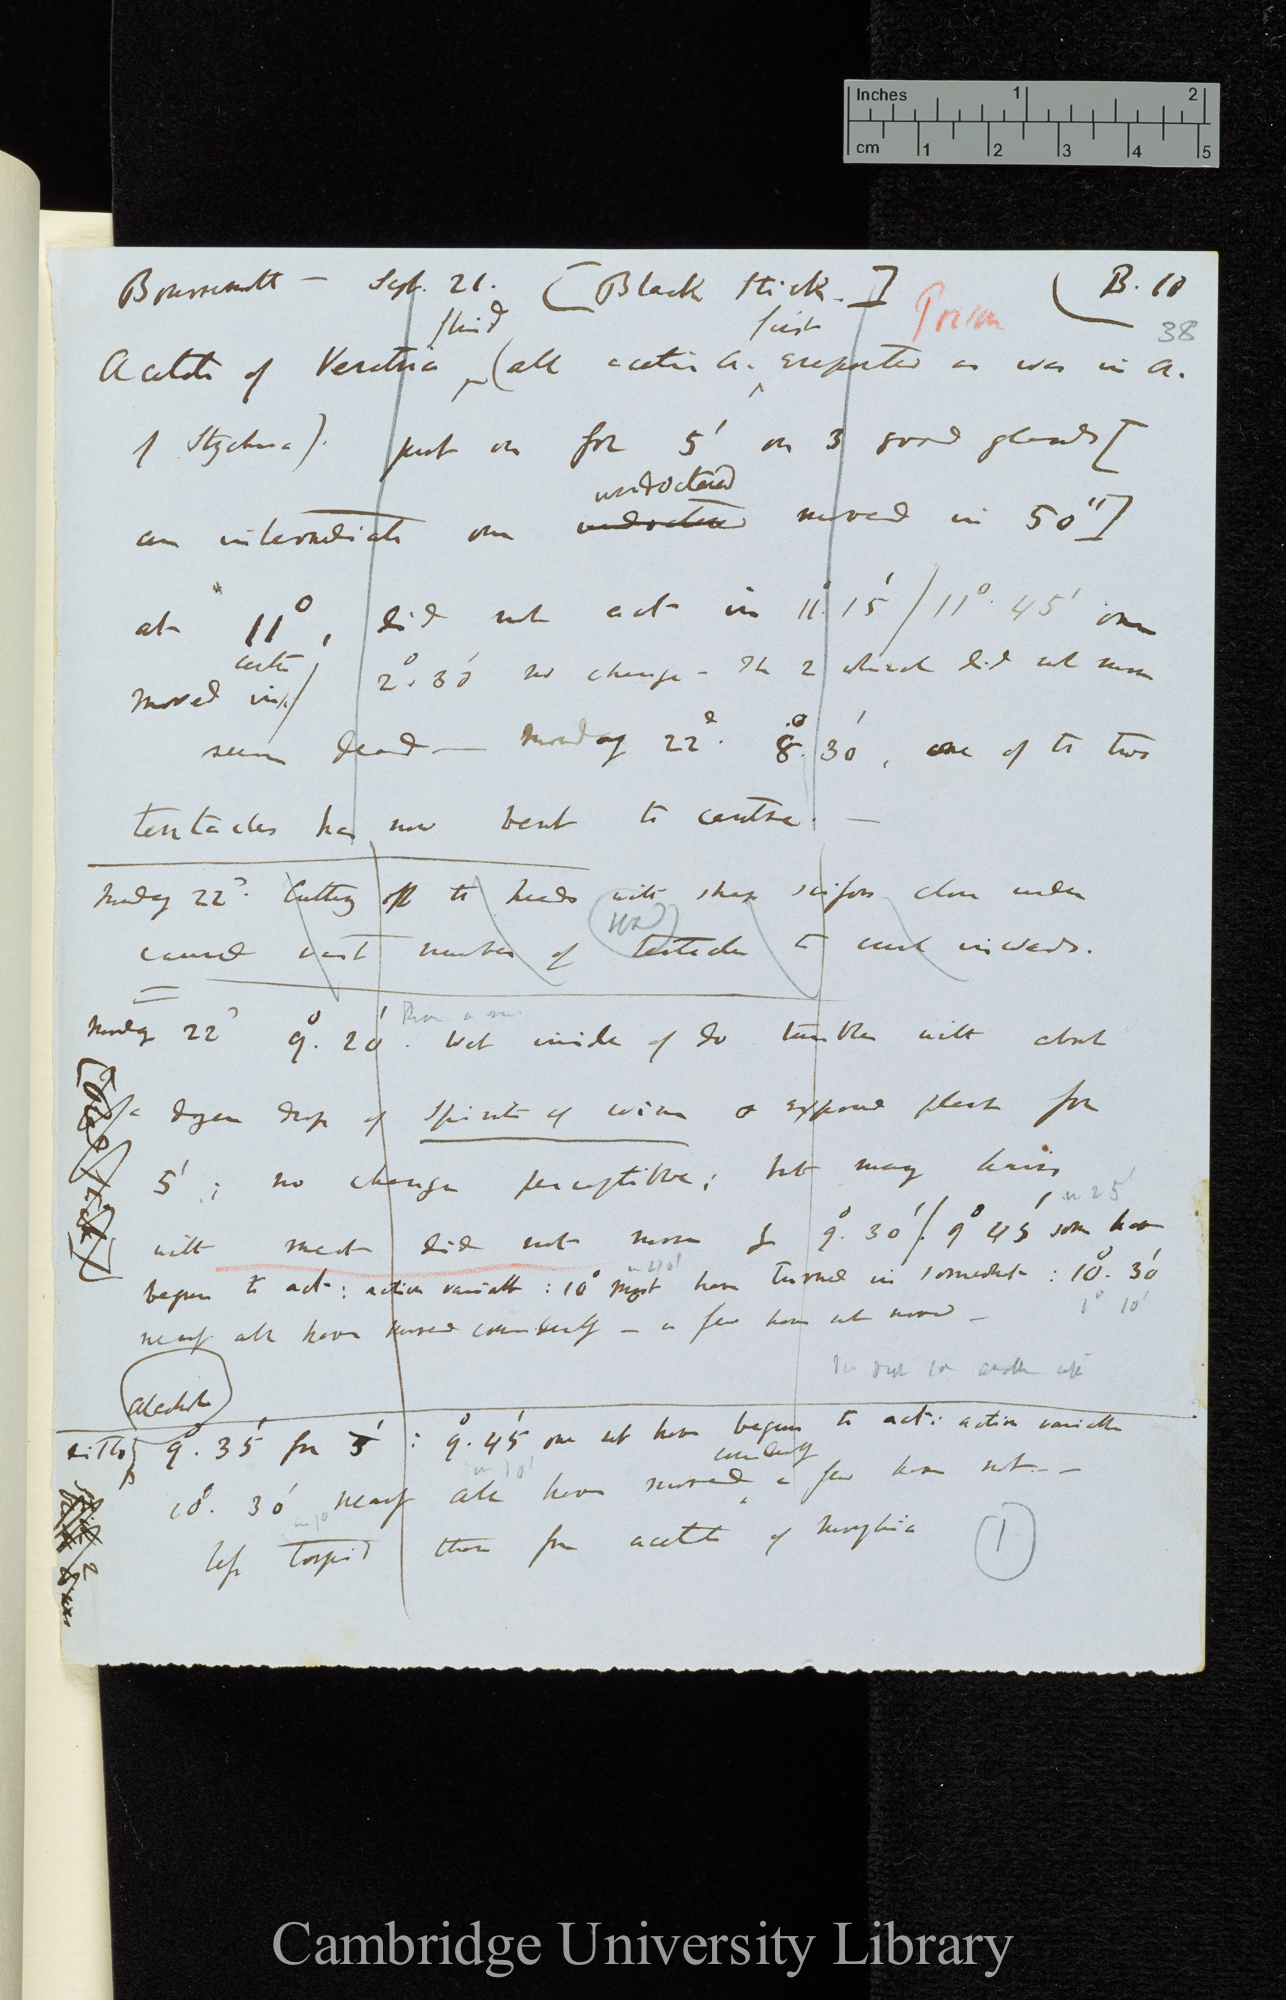 Inches 1 2
cm 1 2 3 4 5
Bournemouth — Sept. 21. [Black Stick.] B. 10
38
fluid first
Acetate of Veratria (all acetic A. evaporated as was in A.
of Strychnia). put on for 5' on 3 good glands [
undoctored
an intermediate one moved in 50"]
at 11°, did not act in 11°.15' / 11°. 45' one
moved in / 2°. 30' no change — The 2 which did not move
seem dead — Monday 22d. 8°. 30', one of the two
tentacles has now bent to centre. —
Monday 22d. Cutting off the heads with sharp scissors close under
caused vast number of tentacles to curl inwards.
Used
Monday 22d 9°. 20'. Wet inside of do tumbler with about
1/2 dozen drops of Spirits of wine & exposed plant for
5'; no change perceptible; but many hairs
in 25'
with meat did not move for 9°. 30' / 9° 45' some have
in 40'
begun to act: action variable: 10° most have turned in somewhat: 10°. 30'
1° 10'
nearly all have moved considerably — a few have not moved —
Alcohol
ditto 9°. 35' for 5': 9°. 45' one set have begun to act: action variable
considerably
10°. 30' nearly all have moved a few have not. —
less torpid than for acetate of Morphia
1
Cambridge University Library